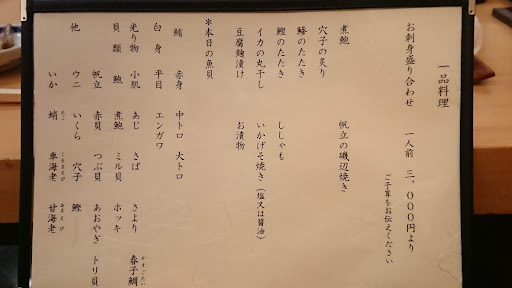 一品料理
お刺身盛り合わせ 一人前 三、〇〇〇円より
ご予算をお伝えください
煮鮑 帆立の磯辺焼き
穴子の炙り
鯵のたたき
鰹のたたき ししゃも
イカの丸干し いかげそ焼き(塩又は醤油)
豆腐麹漬け お漬物
*本日の魚貝
鮪 赤身 中トロ 大トロ
白身 平目 エンガワ
光り物 小肌 あじ さば さより 春子鯛
かすごたい
貝類 鮑 煮鮑 ミル貝 ホッキ
帆立 赤貝 つぶ貝 あおやぎ トリ貝
他 ウニ いくら 穴子 鰹
いか 蛸 車海老 甘海老
たこ くるまえび あまえび